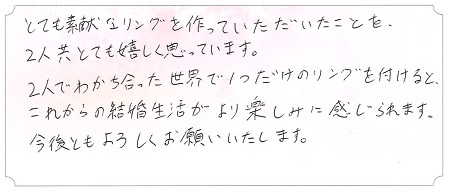 とても素献なリングを作っていただいたことを、
2人共とても嬉しく思っています。
2人でわかち合った世界で1つだけのリングを付けると、
これからの結婚生活がより楽しみに感じられます。
今後ともよろしくお願いいたします。